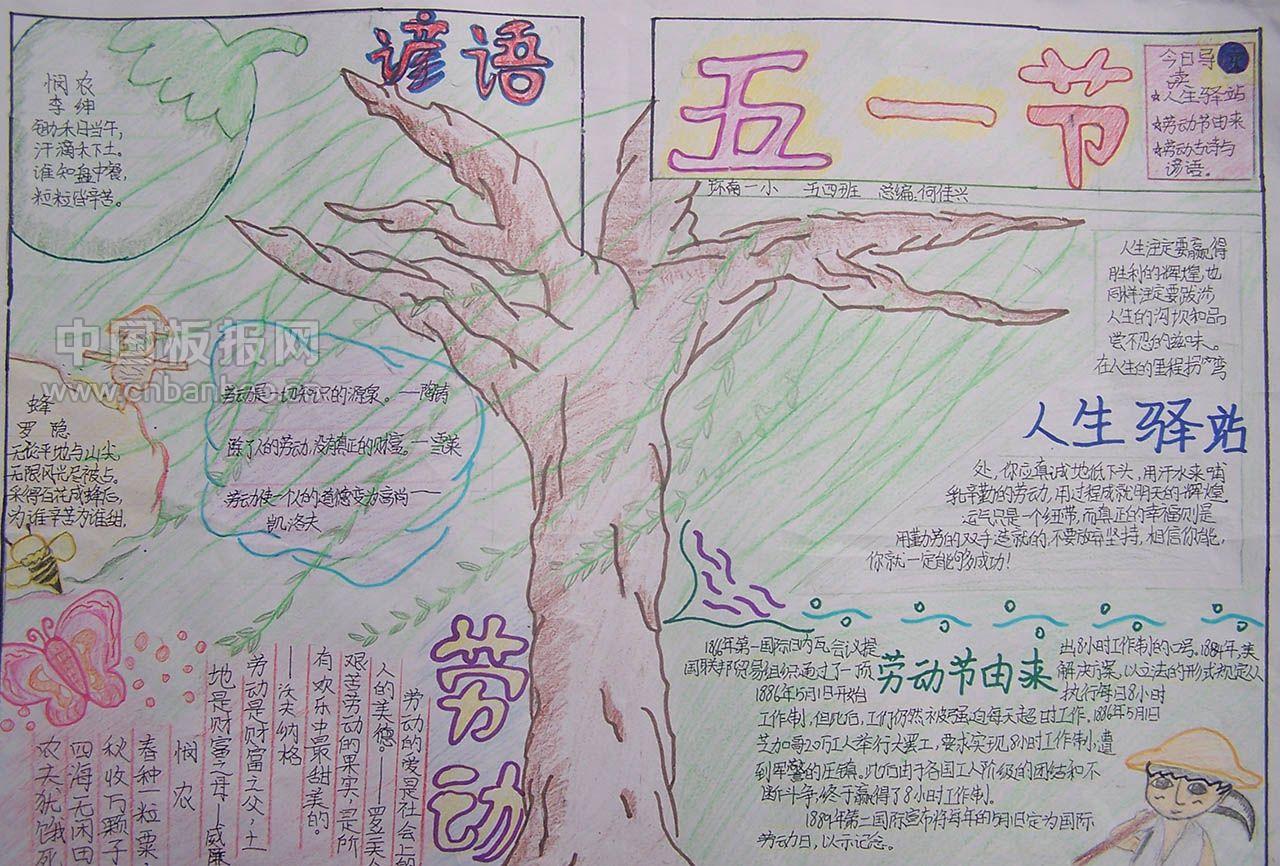 谚语
五一节
今日导
卖
人生驿站
劳动节由来
劳动古诗与
谚语。
环南一小 五四班 总编:何佳兴
悯农
李绅
锄禾日当午,
汗滴禾下土。
谁知盘中餐,
粒粒皆辛苦。
中国板报网
www.cnbanbao.cn
蜂
罗隐
无论平地与山尖,
无限风光尽被占。
采得百花成蜂后,
为谁辛苦为谁甜,
劳动是一切知识的源泉。——陶铸
除了人的劳动,没有真正的财富。——雪莱
劳动使一个人的道德变为高尚——
凯洛夫
人生注定要赢得
胜利的辉煌,也
同样注定要跋涉
人生的沟坝和品
尝不忍的滋味。
在人生的里程拐弯
人生驿站
处,你应真诚地低下头,用汗水来哺
乳辛勤的劳动,用过程成就明天的辉煌,
运气只是一个纽带,而真正的幸福则是
用勤劳的双手造就的,不要放弃坚持,相信你能,
你就一定能够成功!
劳动
劳动的爱是社会上的
人的美德——罗兰夫人
艰苦劳动的果实,是所
有欢乐中最甜美的。
——沃夫纳格
劳动是财富之父,土
地是财富之母——威廉
悯农
春种一粒粟
秋收万颗子
四海无闲田
农夫犹饿死
劳动节由来
1866年第一国际日内瓦会议提
出8小时工作制的口号。1884年,美
国联邦贸易组织通过了一项
解决方案,以立法的形式规定从
1886年5月1日开始
执行每日8小时
工作制,但此后,工人们仍然被强迫每天超时工作。1886年5月1日
芝加哥20万工人举行大罢工,要求实现8小时工作制,遭
到军警的压镇。此后由于各国工人阶级的团结和不
断斗争,终于赢得了8小时工作制。
1889年第二国际宣布将每年的5月1日定为国际
劳动日,以示记念。